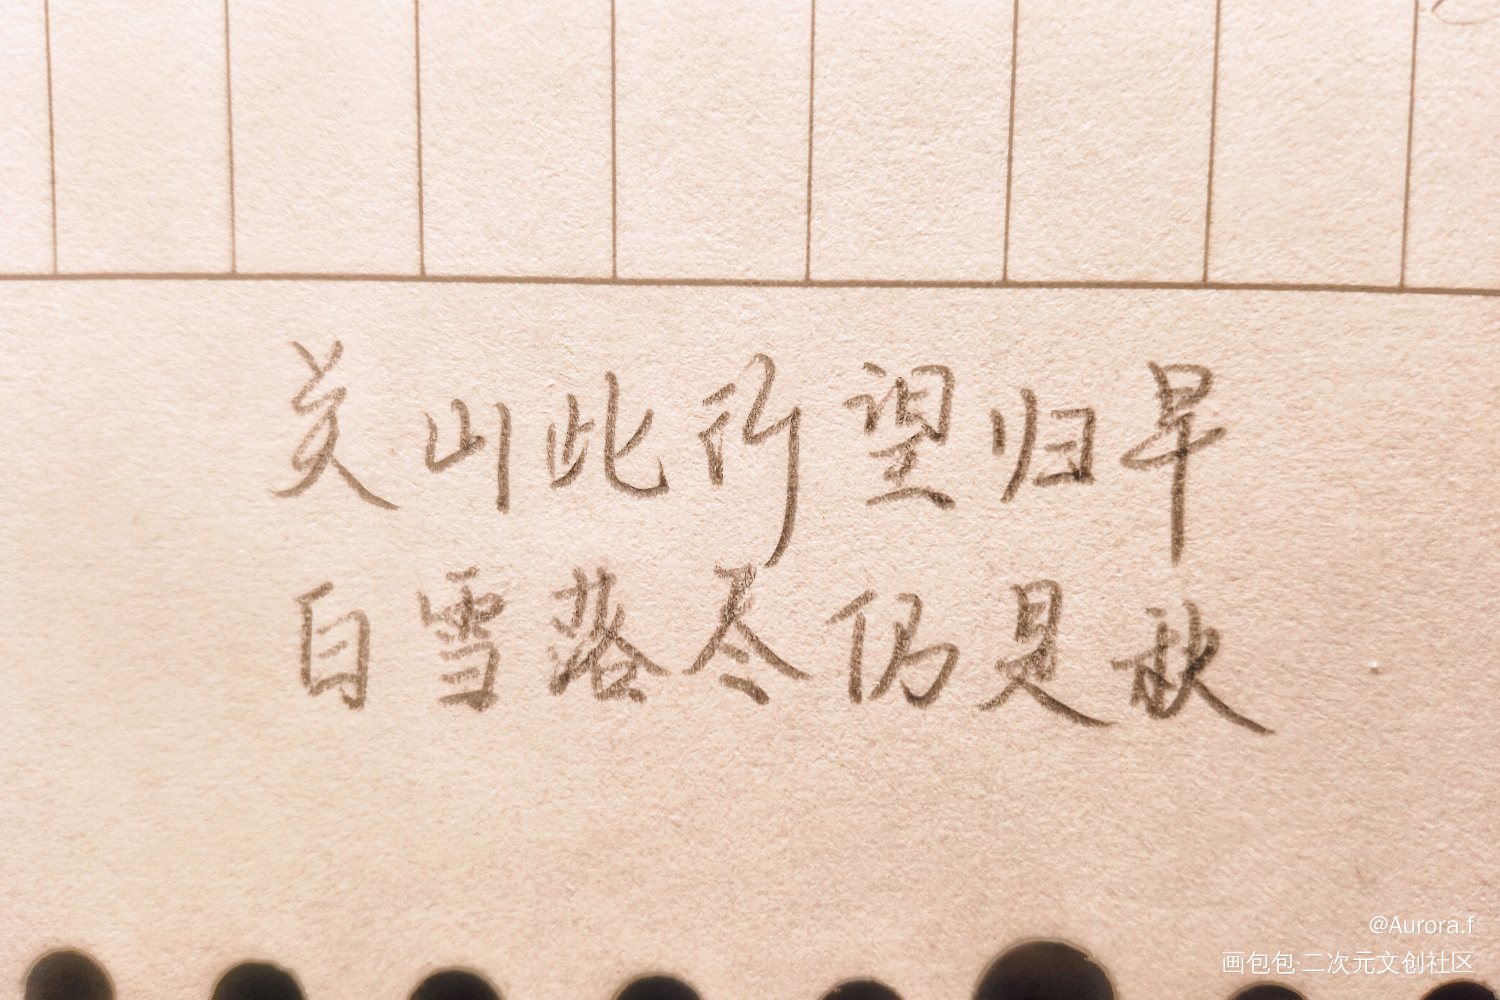 关山此所望归早
白雪落尽仍是秋
@Aurora.f
画包包·二次元文创社区